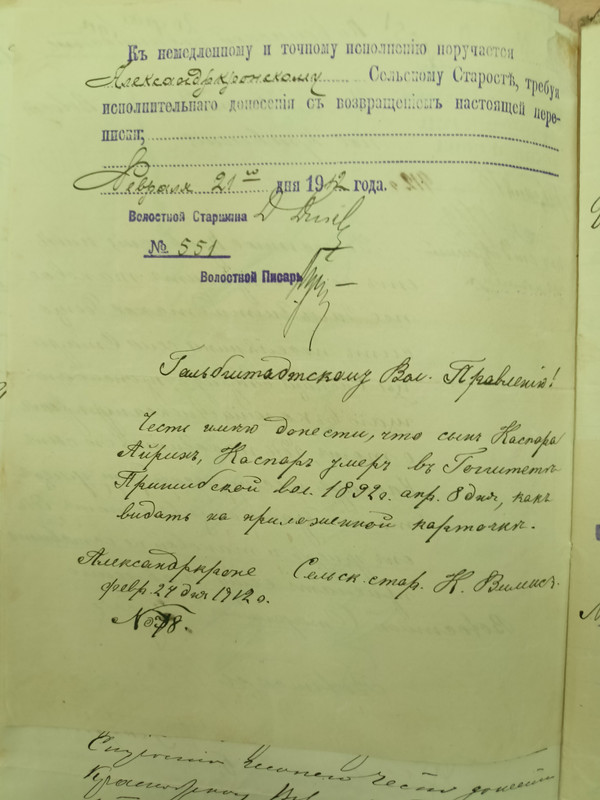 Къ немедленному и точному исполненію поручается
Александркронскому Сельскому Старостѣ, требуя
исполнительнаго донесенія съ возвращеніемъ настоящей пере-
писки;
Февраля 21 го дня 1912 года.
Волостной Старшина
№ 551
Волостной Писарь
Гальбштадтскому Вол. Правленію!
Честь имѣю донести, что сынъ Каспара
Айрихъ, Каспаръ умеръ въ Готтетъ
Пришибской вол. 1892 г. апр. 8 дня, какъ
видать на приложенной карточкѣ.
Александркроне Сельск. стар. К.
февр. 24 дня 1912 г.
№ 78.
честь